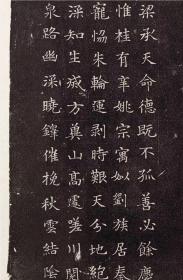 梁承天命德既不孤善必餘慶
惟桂有辛姚宗寓姒劉族居秦
寵恊朱輪運剥時艱天分地絶
深知生滅方冀山高遽嗟川閱
泉路幽深曉鐸催挽秋雲結陰